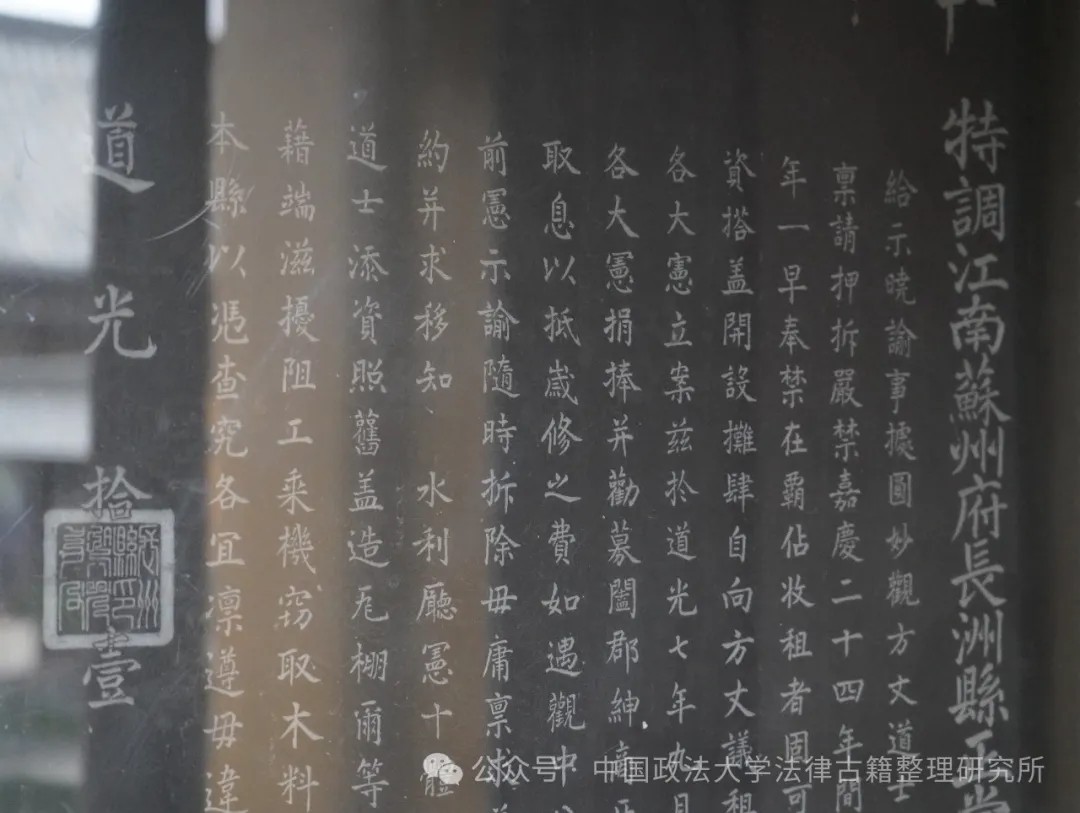 特調江南蘇州府長洲縣正堂
給示曉諭事據圓妙觀方丈道士
禀請押拆嚴禁嘉慶二十四年間
年一早奉禁在覇佔收租者固可
資搭盖開設攤肆自向方丈議租
各大憲立案兹於道光七年九月
各大憲捐捧并勸募闔郡紳商
取息以抵歲修之費如遇觀中
前憲示諭隨時拆除毋庸禀求
約并求移知 水利廳憲十體
道士添資照舊盖造瓦棚爾等
藉端滋擾阻工乘機窃取木料
本縣以凭查究各宜凛遵毋違
道光拾壹
長洲縣印
公众号 中国政法大学法律古籍整理研究所